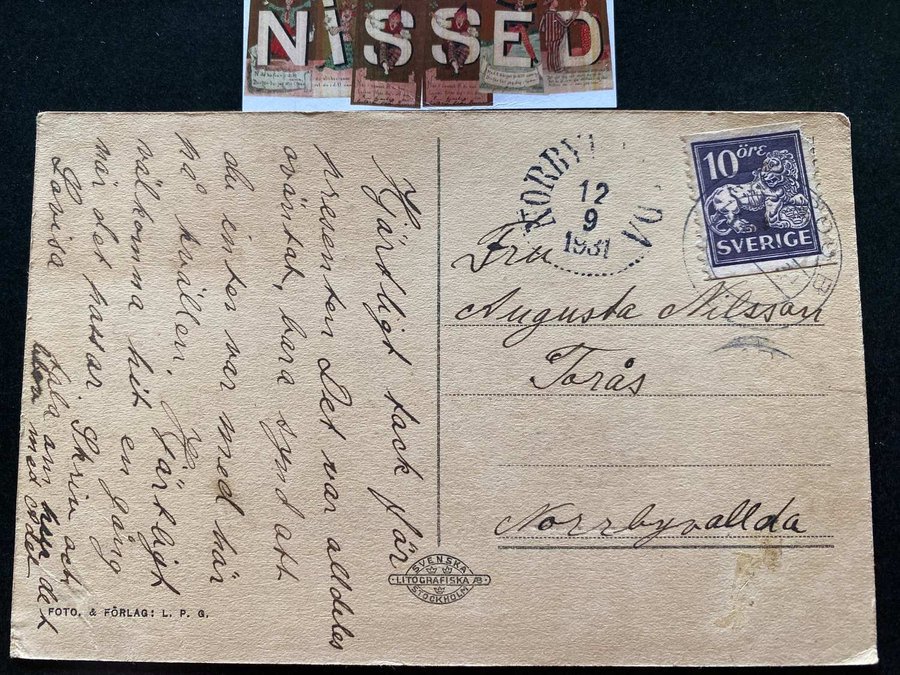 NISSED
Hjärtligt tack för
presenten Det var alldeles
oväntat, bara synd att
du inter var med här
på kvällen. Hjärtligt
välkomna hit en gång
när det passar. Skriv och
tala om det
med Adele
Lovisa
NORBY
12
9
1931
10 ÖRE
SVERIGE
Fru
Augusta Nilsson
Torås
Norrbyvallda
SVENSKA
LITOGRAFISKA AB
STOCKHOLM
FOTO. & FÖRLAG: L. P. G.